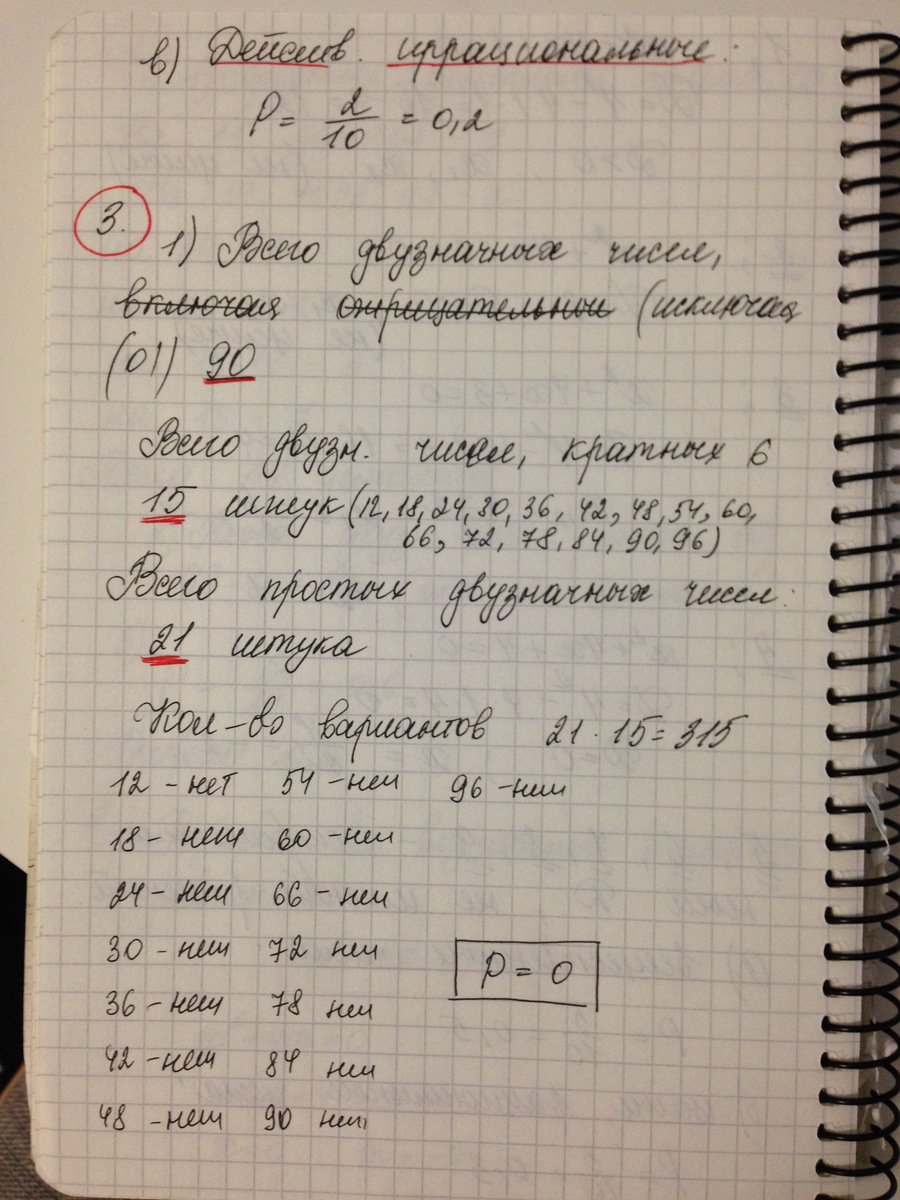 в) Действ. иррациональные:
P = 2/10 = 0,2
3.
1) Всего двузначных чисел,
включая отрицательные (исключая
(01) 90
Всего двузн. чисел, кратных 6
15 штук (12, 18, 24, 30, 36, 42, 48, 54, 60,
66, 72, 78, 84, 90, 96)
Всего простых двузначных чисел:
21 штука
Кол-во вариантов 21 · 15 = 315
12 - нет 54 - нет 96 - нет
18 - нет 60 - нет
24 - нет 66 - нет
30 - нет 72 нет
36 - нет 78 нет
42 - нет 84 нет
48 - нет 90 нет
P = 0